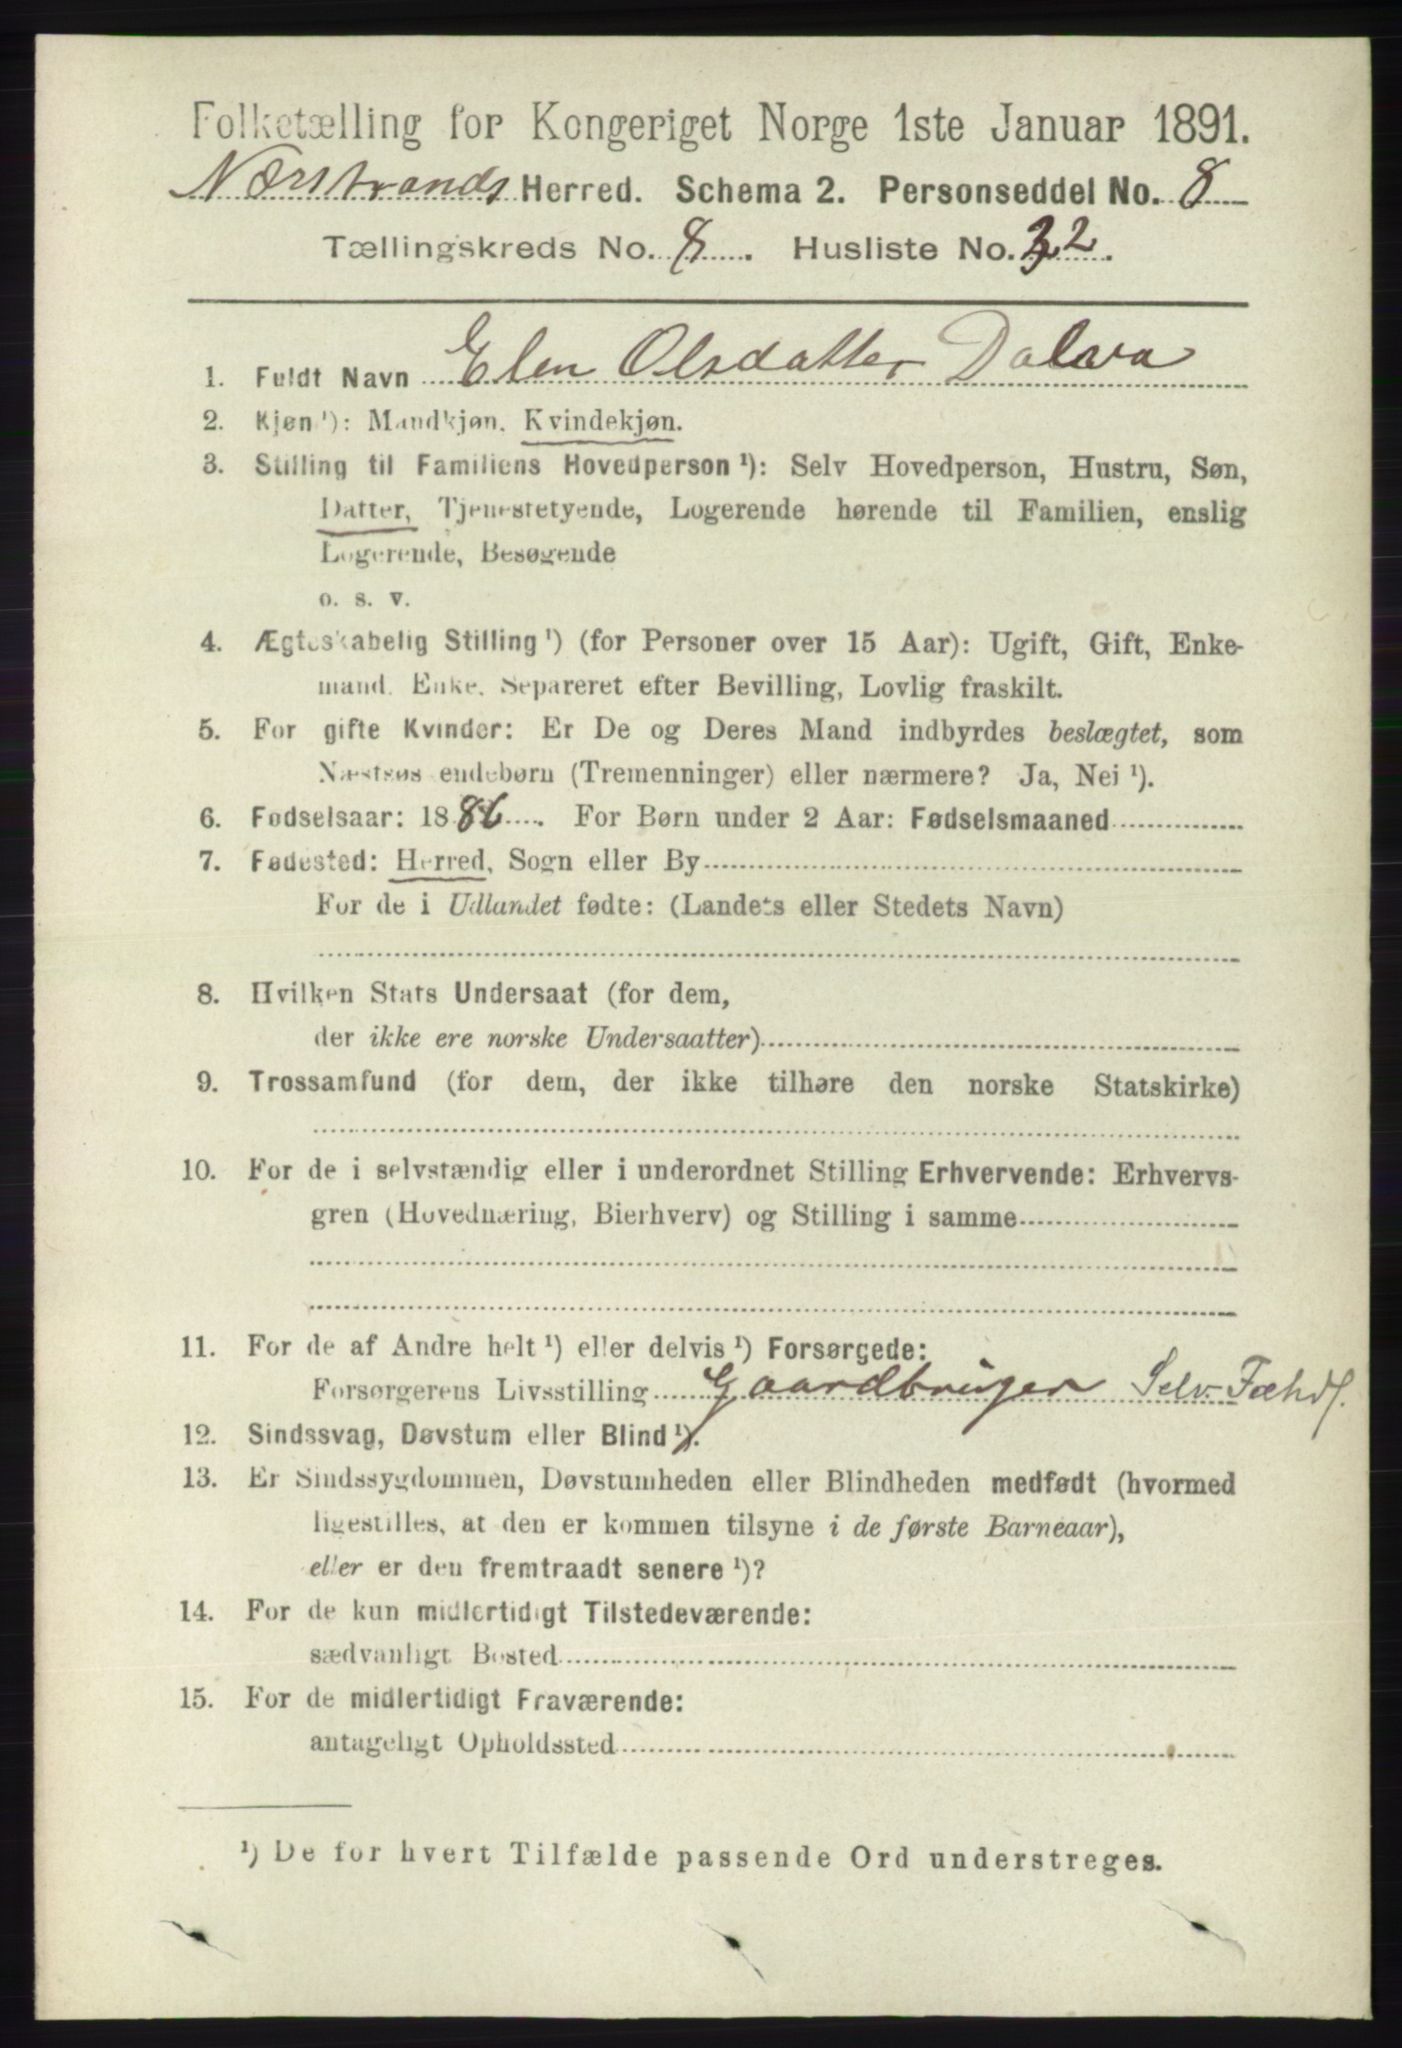 Folketælling for Kongeriget Norge 1ste Januar 1891.
Nærstrands Herred. Schema 2. Personseddel No. 8
Tællingskreds No. 8. Husliste No. 32.
1. Fuldt Navn Elen Olsdatter Dalva
2. Kjøn ¹): Mandkjøn, Kvindekjøn.
3. Stilling til Familiens Hovedperson ¹): Selv Hovedperson, Hustru, Søn,
Datter, Tjenestetyende, Logerende hørende til Familien, enslig
Logerende, Besøgende
o. s. v.
4. Ægteskabelig Stilling ¹) (for Personer over 15 Aar): Ugift, Gift, Enke-
mand, Enke, Separeret efter Bevilling, Lovlig fraskilt.
5. For gifte Kvinder: Er De og Deres Mand indbyrdes beslægtet, som
Næstsøskendebørn (Tremenninger) eller nærmere? Ja, Nei ¹).
6. Fødselsaar: 1886. For Børn under 2 Aar: Fødselsmaaned
7. Fødested: Herred, Sogn eller By
For de i Udlandet fødte: (Landets eller Stedets Navn)
8. Hvilken Stats Undersaat (for dem,
der ikke ere norske Undersaatter)
9. Trossamfund (for dem, der ikke tilhøre den norske Statskirke)
10. For de i selvstændig eller i underordnet Stilling Erhvervende: Erhvervs-
gren (Hovednæring, Bierhverv) og Stilling i samme
11. For de af Andre helt ¹) eller delvis ¹) Forsørgede:
Forsørgerens Livsstilling Gaardbruger Selv
12. Sindssvag, Døvstum eller Blind ¹).
13. Er Sindssygdommen, Døvstumheden eller Blindheden medfødt (hvormed
ligestilles, at den er kommen tilsyne i de første Barneaar),
eller er den fremtraadt senere ¹)?
14. For de kun midlertidigt Tilstedeværende:
sædvanligt Bosted
15. For de midlertidigt Fraværende:
antageligt Opholdssted
¹) De for hvert Tilfælde passende Ord understreges.